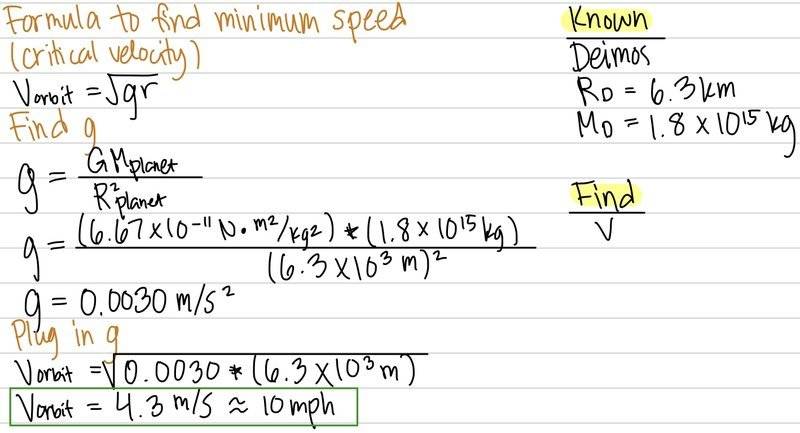 Formula to find minimum speed
(critical velocity)
Vorbit = √gr
Find g
g = GMplanet / R²planet
g = (6.67 × 10⁻¹¹ N · m²/kg²) * (1.8 × 10¹⁵ kg) / (6.3 × 10³ m)²
g = 0.0030 m/s²
Plug in g
Vorbit = √0.0030 * (6.3 × 10³ m)
Vorbit = 4.3 m/s ≈ 10 mph
Known
Deimos
RD = 6.3 km
MD = 1.8 × 10¹⁵ kg
Find
V